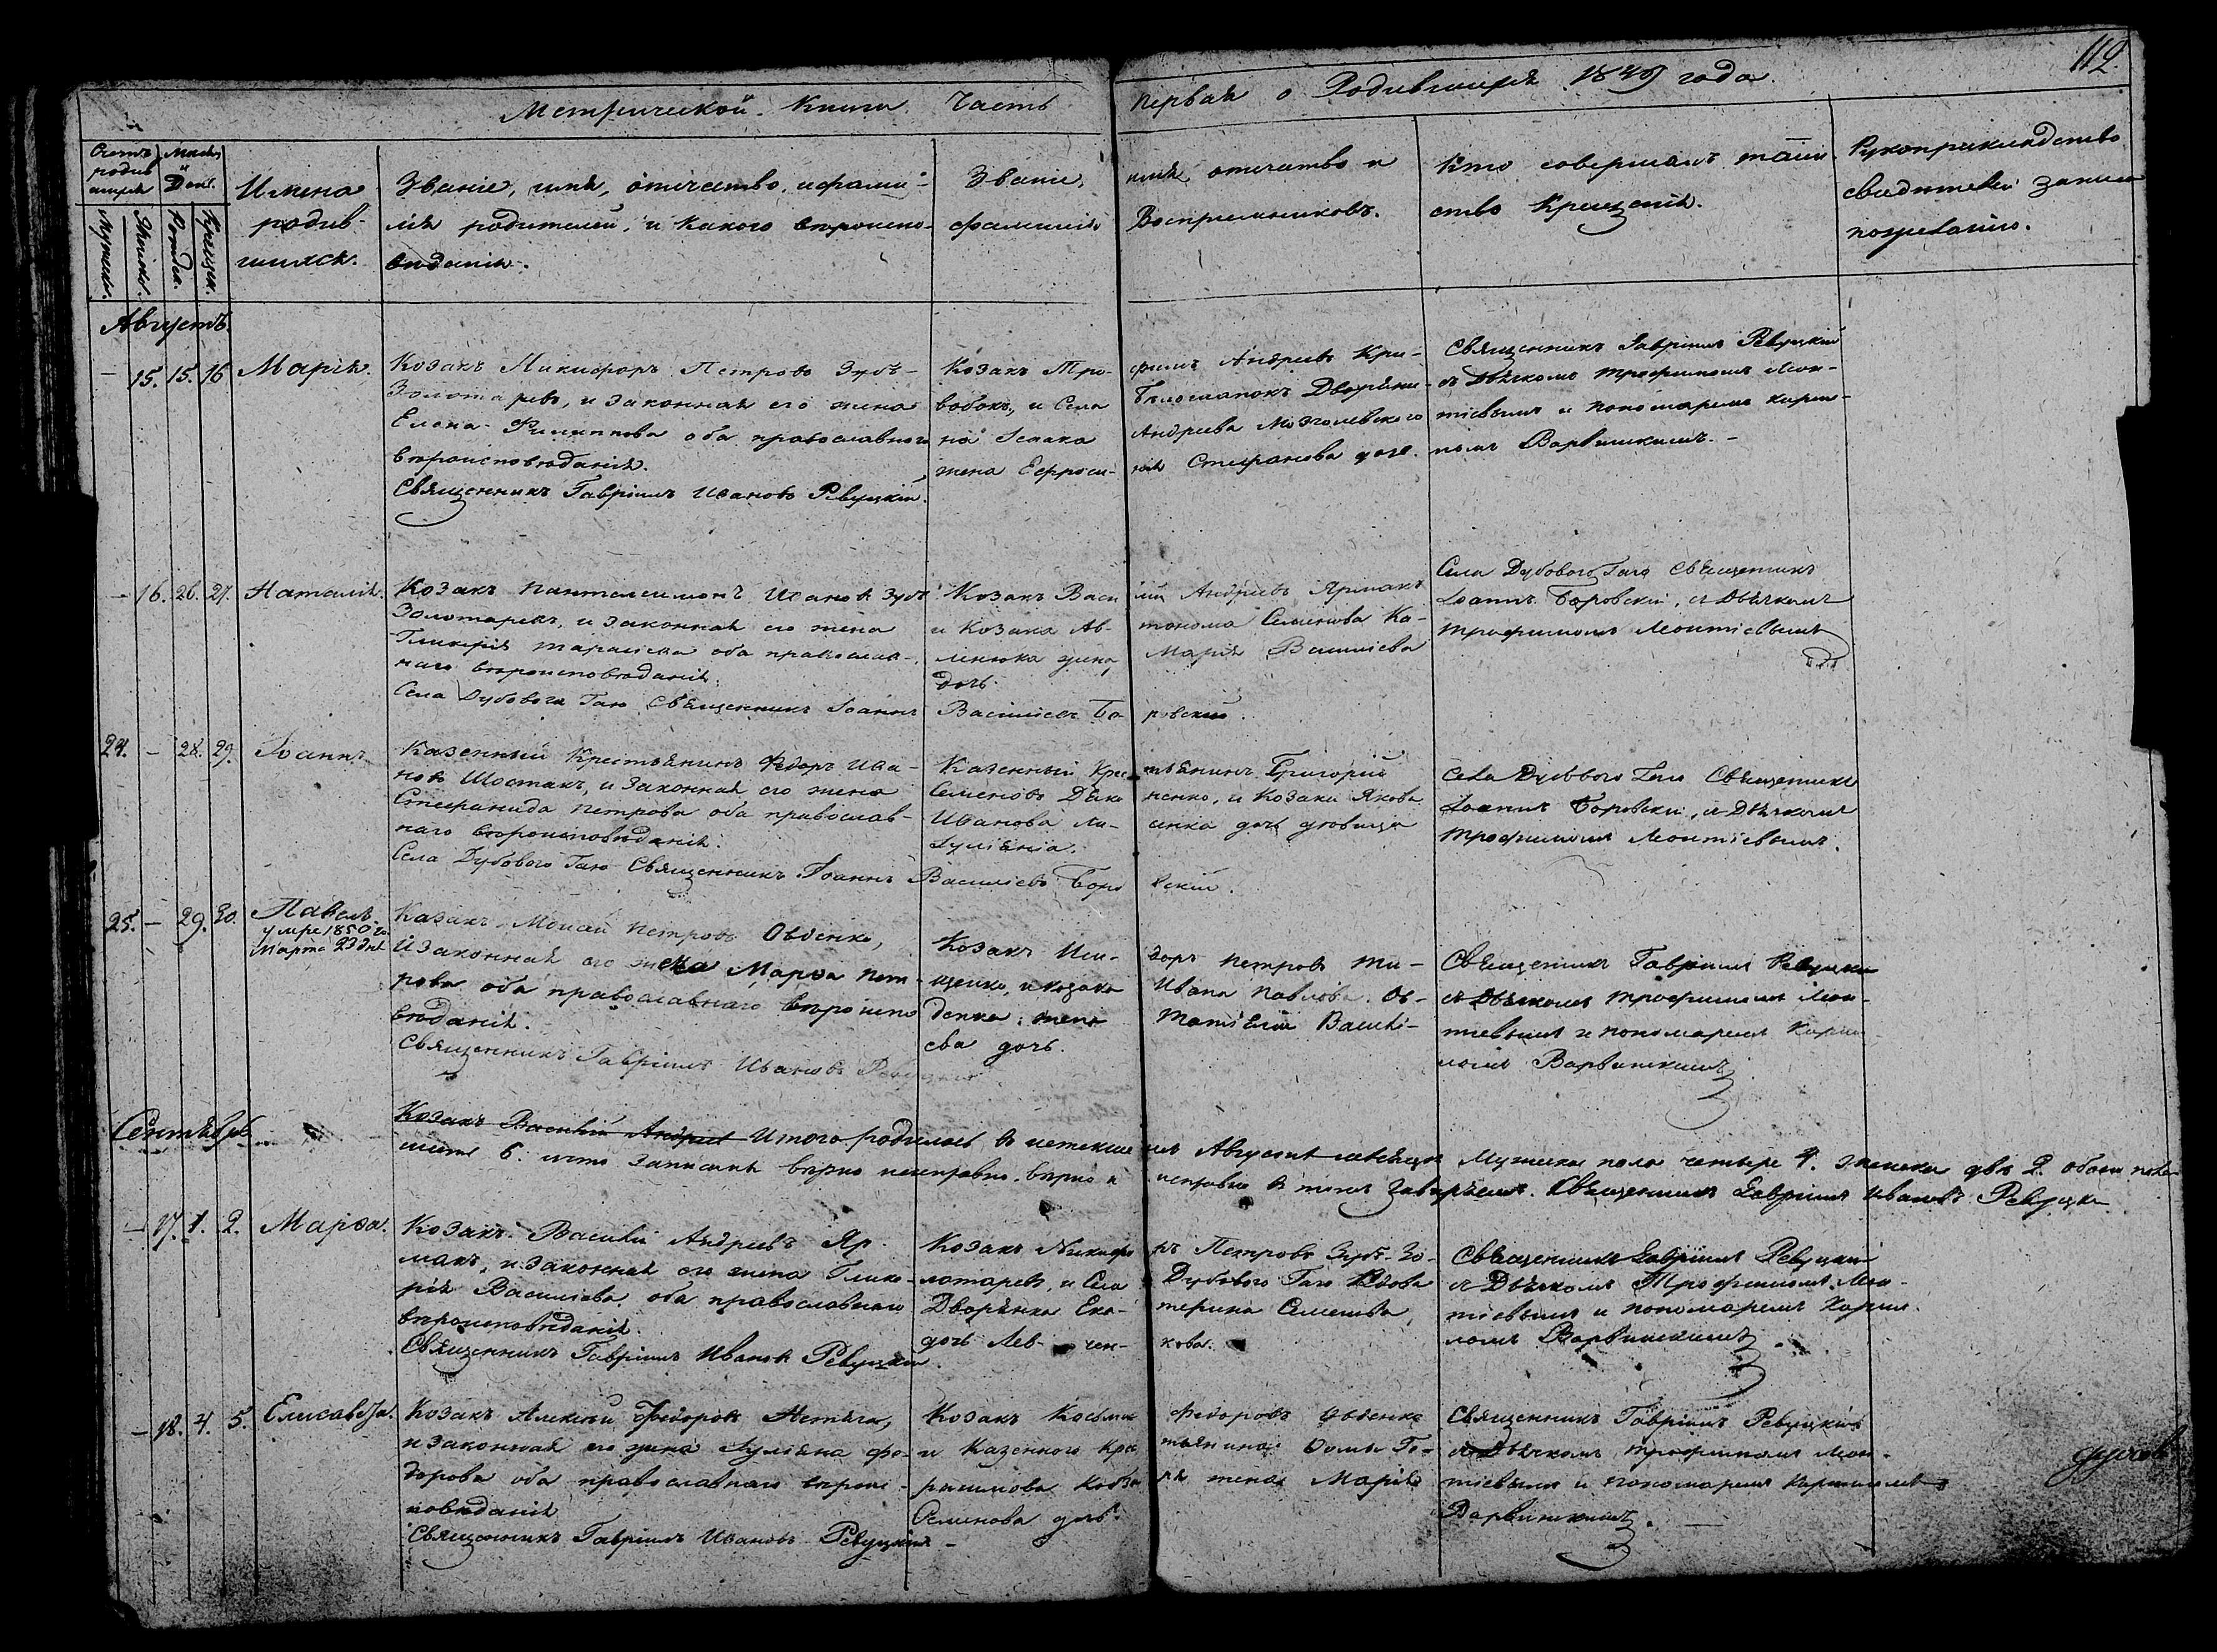 112.
Метрической Книги Часть первая о Родившихся 1849 года.
Счетъ родившихся
Мужеска.
Женска.
Месяц и День.
Рожден.
Крещен.
Имена родив-
шихся.
Званіе, имя, отчество, и фами-
лія родителей, и какого вероиспо-
веданія.
Званіе, имя, отчество и
фамилія Воспріемниковъ.
Кто совершалъ таин-
ство Крещенія.
Рукоприкладство
свидетелей записи
по желанію.
Августъ.
— 15. 15. 16 Марія.
Козакъ Никифоръ Петровъ Зубъ-
Золотаревъ, и законная его жена
Елена Филиппова оба православного
вѣроисповѣданія.
Священникъ Гавріилъ Ивановъ Ревуцкій.
Козакъ Трофимъ Андреевъ Кри-
вобокъ, и Села Белошапокъ Дворяни-
на Андреева Мозголевского
жена Ефросинія Стефанова дочь.
Священникъ Гавріилъ Ревуцкій
съ Дьячкомъ Трофимомъ Леон-
тіевымъ и пономаремъ Карпи-
ломъ Варвинскимъ.
— 16. 26. 27. Наталія.
Козакъ Пантелеимонъ Ивановъ Зубъ
Золотаревъ, и законная его жена
Гликерія Тарасіева оба православ-
наго вѣроисповѣданія.
Села Дубового Гаю Священникъ Іоаннъ Василіевъ Боровскій.
Козакъ Василій Андреевъ Ярмакъ
и Козака Автонома Семенова Ка-
ленюка жена Марія Василіева
дочь.
Села Дубового Гаю Священникъ
Іоаннъ Боровскій, съ Дьячкомъ
Трофимомъ Леонтіевымъ
24. — 28. 29. Іоаннъ.
Казенный Крестьянинъ Федоръ Ива-
новъ Шостакъ, и законная его жена
Стефанида Петрова оба православ-
наго вѣроисповѣданія.
Села Дубового Гаю Священникъ Іоаннъ Василіевъ Боровскій.
Казенный Крестьянинъ Григорій
Семеновъ и Козака Якова
Иванова дочь девица
Іуліянія.
Села Дубового Гаю Священникъ
Іоаннъ Боровскій, съ Дьячкомъ
Трофимомъ Леонтіевымъ.
25. — 29. 30. Павелъ.
умре 1850 го.
Марта 23 дня
Казакъ Моисей Петровъ Овденко,
и законная его жена Марѳа Пет-
рова оба православнаго вѣроиспо
вѣданія.
Священникъ Гавріилъ Ивановъ Ревуцкій
Козакъ Исидоръ Петровъ Ти-
щенко, и козака Ивана Павлова Ов-
денка жена Василі-
ева дочь.
Священникъ Гавріилъ Ревуцкій
съ Дьячкомъ Трофимомъ Леон-
тіевымъ и пономаремъ Карпи-
ломъ Варвинскимъ
Сентябрь
Козакъ Василій Андреев Итого родилось въ истекшемъ Августе месяце Мужеска пола четыре 4. женска две 2. обоего пола
шесть 6. что записаны верно исправно. верно и исправно въ томъ Священникъ Гавріилъ Ивановъ Ревуцкій
— 17. 1. 2. Марѳа.
Козакъ Василій Андреевъ Яр-
макъ, и законная его жена Глике-
рія Василіева, оба православнаго
вѣроисповѣданія.
Священникъ Гавріилъ Ивановъ Ревуцкій
Козакъ Никифоръ Петровъ Зубъ Зо-
лотаревъ, и Села Дубового Гаю Вдова
Дворянка Екатерина Семенова,
дочь Левченкова.
Священникъ Гавріилъ Ревуцкій
съ Дьячкомъ Трофимомъ Леон-
тіевымъ и пономаремъ Карпи-
ломъ Варвинскимъ
— 18. 4. 5. Елисавета.
Козакъ Алексей Федоровъ Нетяга,
и законная его жена Іуліяна Фе-
дорова оба православнаго вѣроис-
повѣданія
Священникъ Гавріилъ Ивановъ Ревуцкій
Козакъ Косьма Федоровъ Овденко
и Казенного Крестьянина Фомы Ге-
расимова жена Марія
Семенова дочь.
Священникъ Гавріилъ Ревуцкій
съ Дьячкомъ Трофимомъ Леон-
тіевымъ и пономаремъ Карпиломъ
Варвинскимъ.